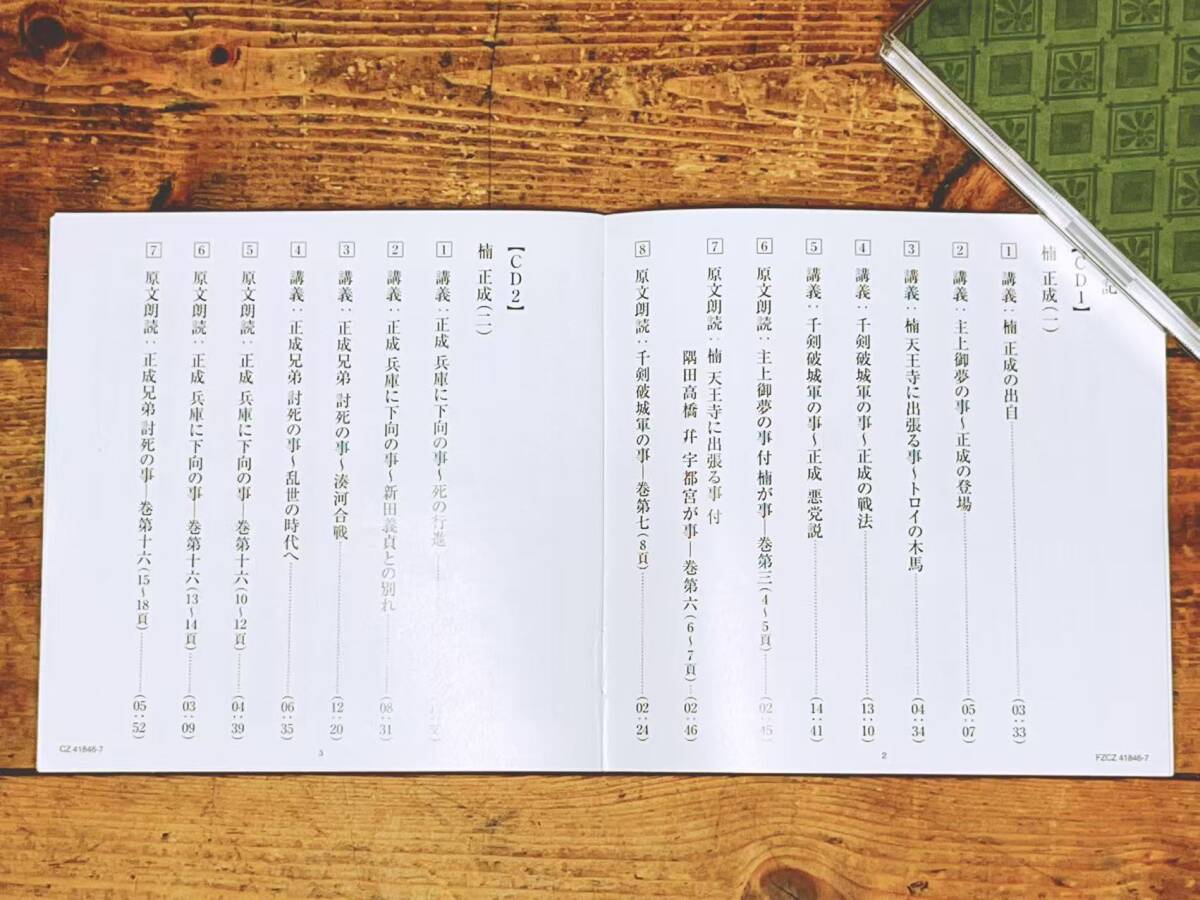 記
【CD1】
楠 正成(一)
1 講義：楠 正成の出自 (03:33)
2 講義：主上御夢の事〜正成の登場 (05:07)
3 講義：楠 天王寺に出張る事〜トロイの木馬 (04:34)
4 講義：千剣破城軍の事〜正成の戦法 (13:10)
5 講義：千剣破城軍の事〜正成 悪党説 (14:41)
6 原文朗読：主上御夢の事 付 楠が事―巻第三(4〜5頁) (02:45)
7 原文朗読：楠 天王寺に出張る事 付
隅田高橋 幷 宇都宮が事―巻第六(6〜7頁) (02:46)
8 原文朗読：千剣破城軍の事―巻第七(8頁) (02:24)
2
FZCZ 41846-7
【CD2】
楠 正成(二)
1 講義：正成 兵庫に下向の事〜死の行進
2 講義：正成 兵庫に下向の事〜新田義貞との別れ (08:31)
3 講義：正成兄弟 討死の事〜湊河合戦 (12:20)
4 講義：正成兄弟 討死の事〜乱世の時代へ (06:35)
5 原文朗読：正成 兵庫に下向の事―巻第十六(10〜12頁) (04:39)
6 原文朗読：正成 兵庫に下向の事―巻第十六(13〜14頁) (03:09)
7 原文朗読：正成兄弟 討死の事―巻第十六(15〜18頁) (05:52)
3
CZ 41846-7